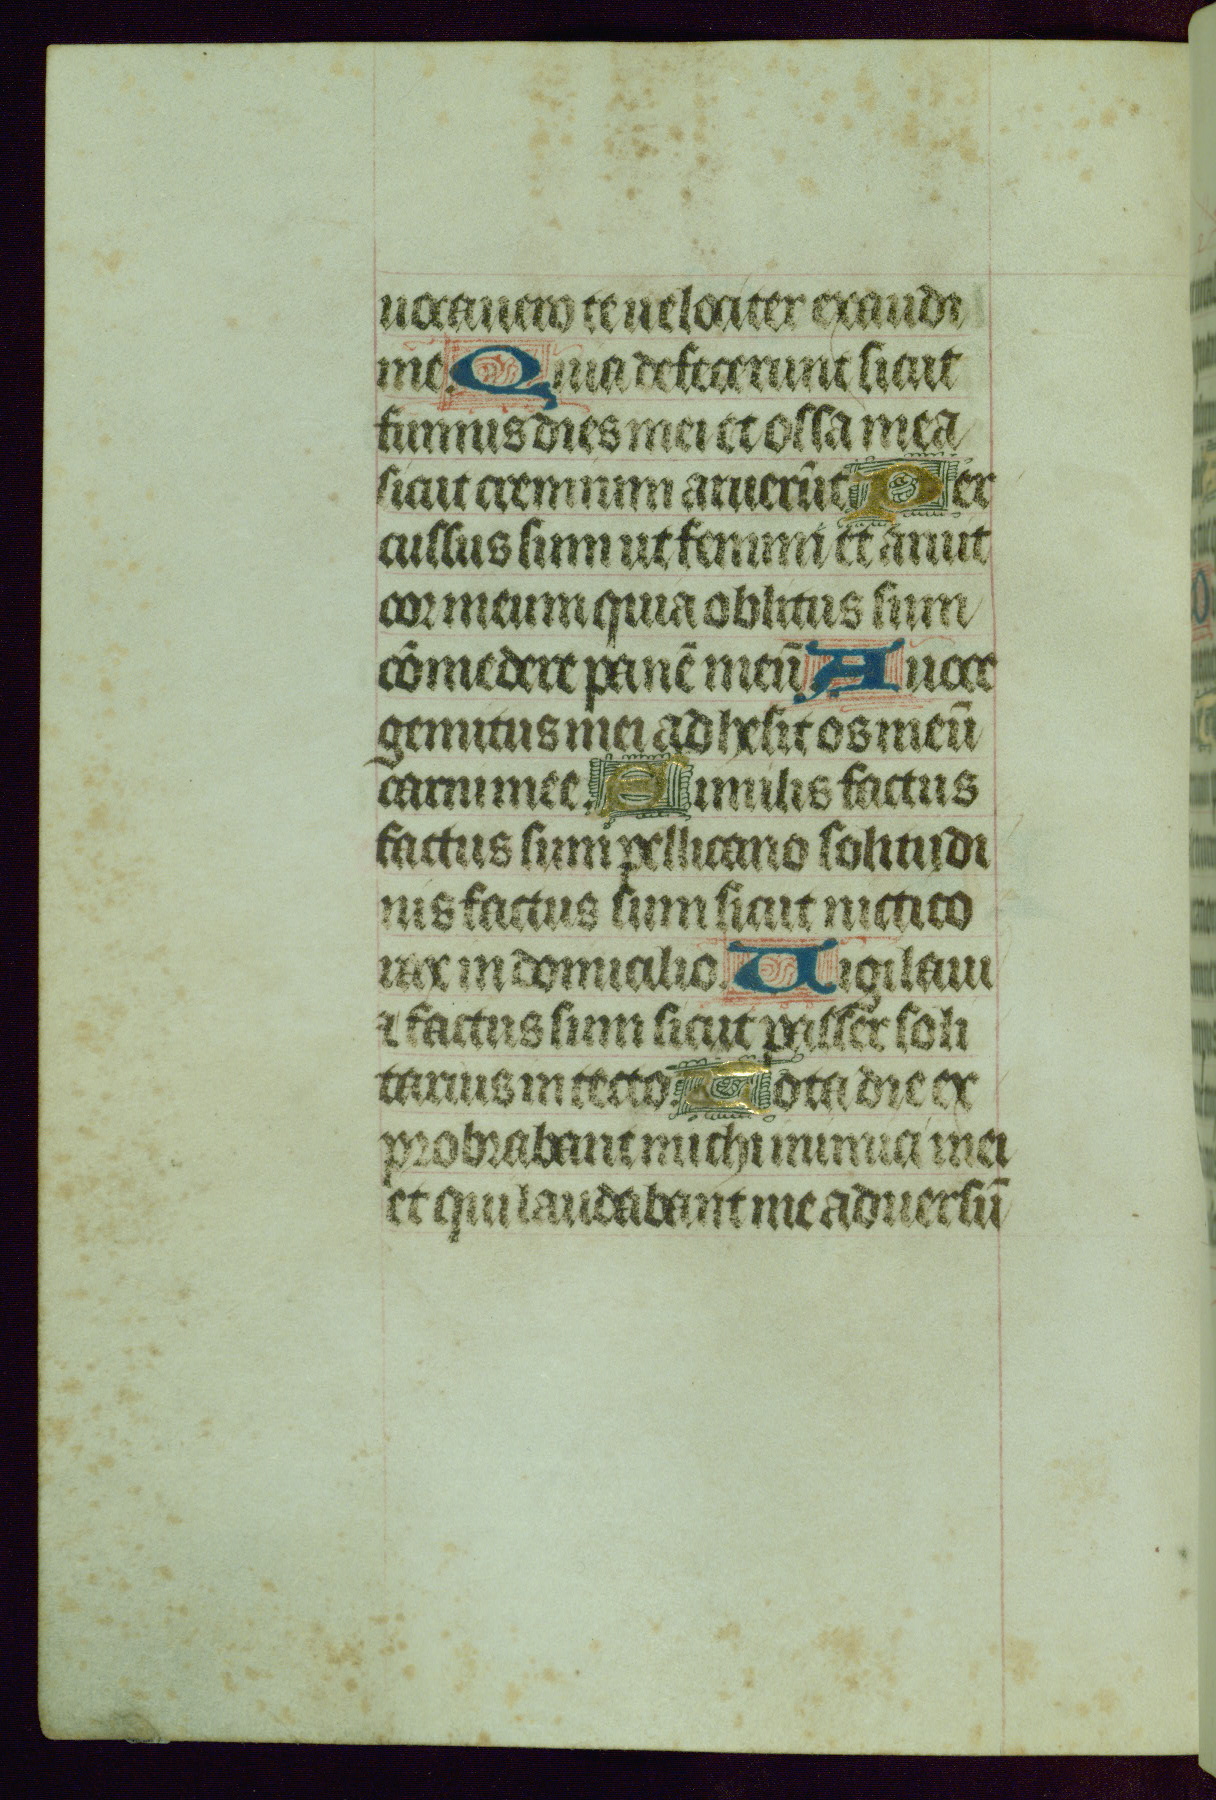 uocauero te uelociter exaudi
me. Quia defecerunt sicut
fumus dies mei et ossa mea
sicut cremium aruerūt Per
cussus sum ut fenum et aruit
cor meum quia oblitus sum
cōmedere panē meū A uoce
gemitus mei adhesit os meū
carni mee. Similis factus
factus sum pellicano solitudi
nis factus sum sicut nictico
rax in domicilio. Uigilaui
⁊ factus sum sicut passer soli
tarius in tecto. Tota die ex
probrabant michi inimici mei
et qui laudabant me aduersū